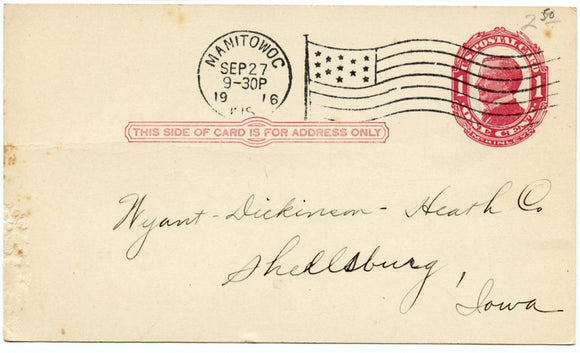 2 50
MANITOWOC
SEP 27
9-30P
19 16
WIS.
U.S. POSTAL CARD
1 1
ONE CENT
McKINLEY
THIS SIDE OF CARD IS FOR ADDRESS ONLY
Wyant-Dickinson-Heath Co
Shellsburg,
Iowa